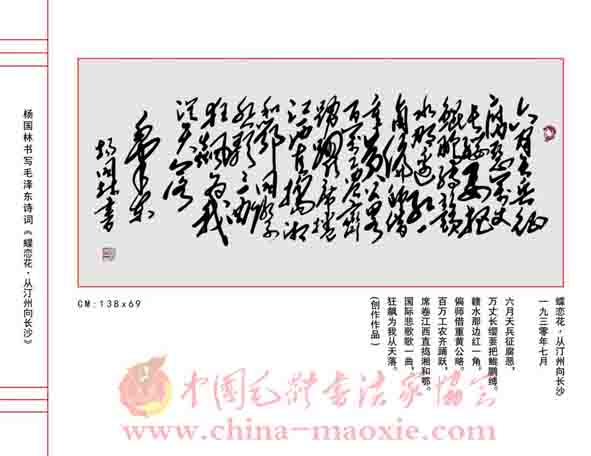 杨国林书写毛泽东诗词《蝶恋花·从汀州向长沙》
六月天兵征
腐恶万丈
长缨要把
鲲鹏缚赣
水那边红一
角偏师借
重黄公略
百万工农齐
踊跃席卷
江西直捣湘
和鄂国际
悲歌一曲
狂飙为我
从天落
毛泽东
杨国林书
CM:138x69
蝶恋花·从汀州向长沙
一九三零年七月
六月天兵征腐恶,
万丈长缨要把鲲鹏缚。
赣水那边红一角,
偏师借重黄公略。
百万工农齐踊跃,
席卷江西直捣湘和鄂。
国际悲歌歌一曲,
狂飙为我从天落。
(创作作品)
中国毛体书法家协会
www.china-maoxie.com